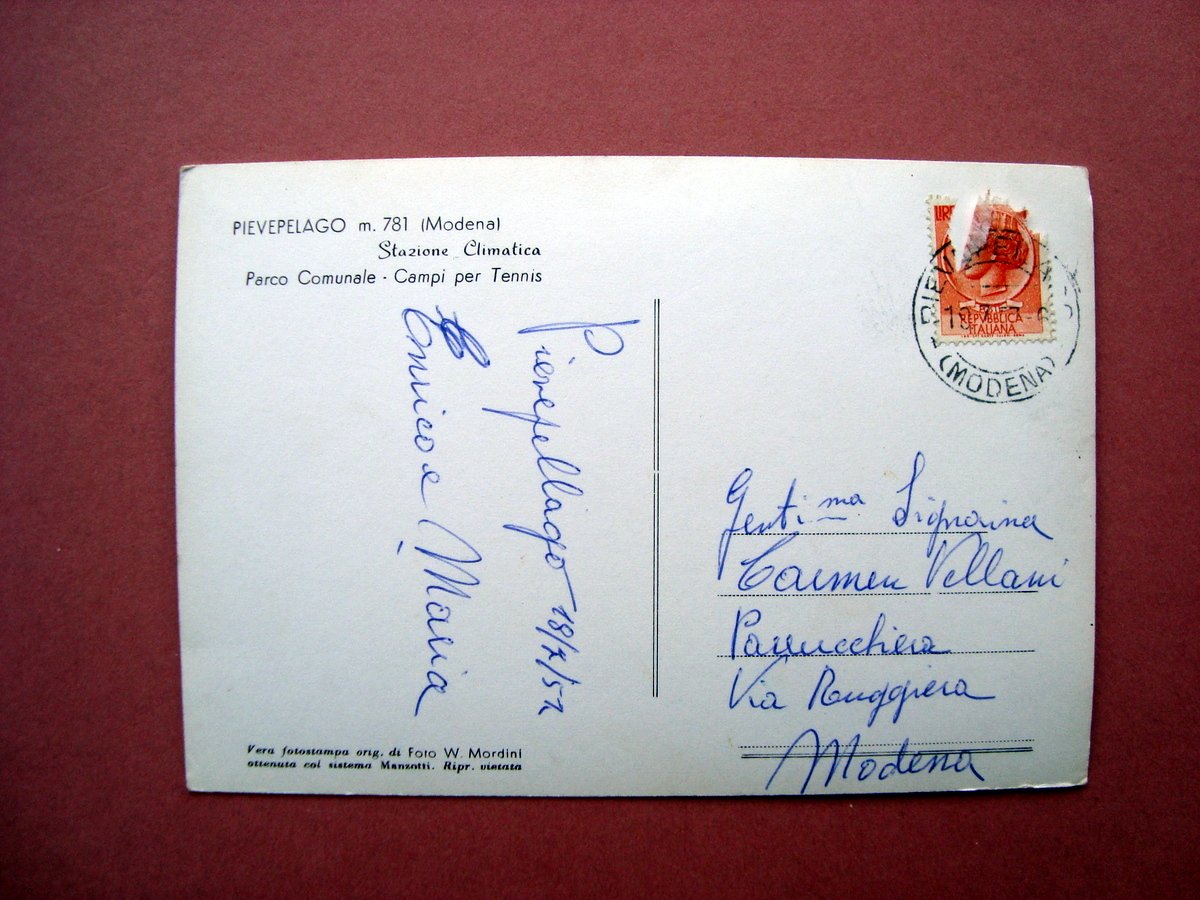 PIEVEPELAGO m. 781 (Modena)
Stazione Climatica
Parco Comunale - Campi per Tennis
Pievepellago 18/7/57
Enrico e Maria
Vera fotostampa orig. di Foto W. Mordini
ottenuta col sistema Manzotti. Ripr. vietata
LIRE
REPVBBLICA
ITALIANA
(MODENA)
Genti ma Signorina
Carmen Vellani
Parrucchiera
Via Ruggiera
Modena